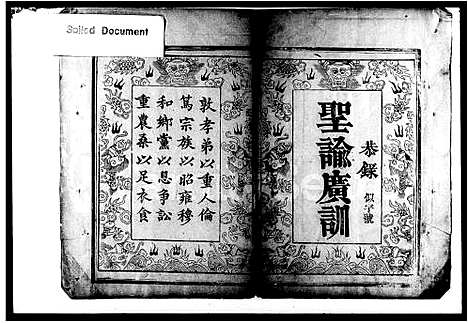 Soiled Document
恭錄
似字號
聖諭廣訓
敦孝弟以重人倫
篤宗族以昭雍穆
和鄉黨以息爭訟
重農桑以足衣食